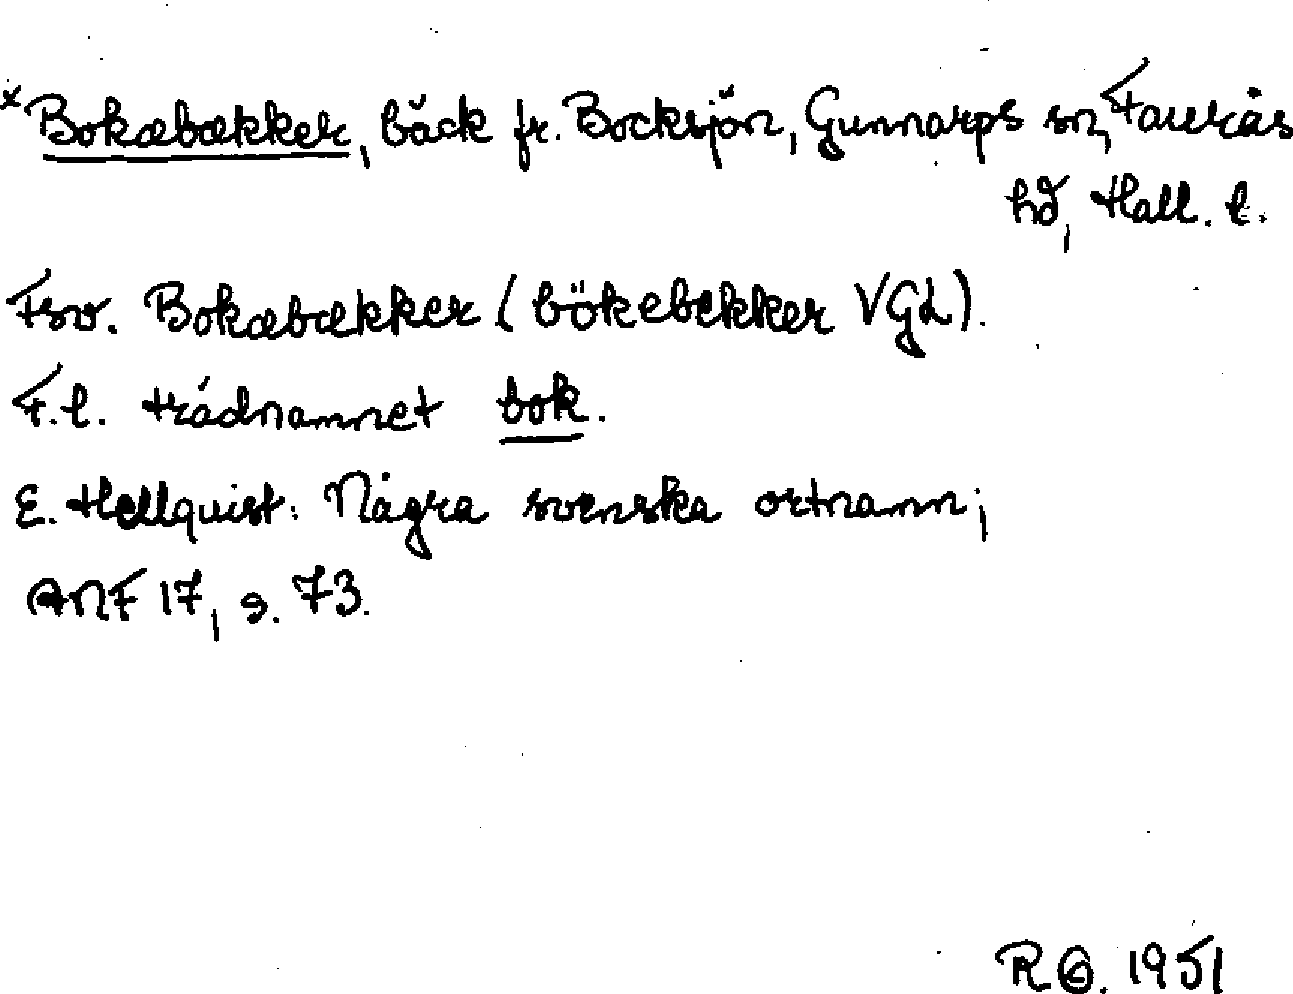 *Bokæbækker, bäck fr. Bocksjön, Gunnarps sn, Faurås
hd, Hall. l.
Fsv. Bokæbækker (bökebekker VGL).
F.l. trädnamnet bok.
E. Hellquist: Några svenska ortnamn;
ANF 17, s. 73.
R.G. 1951